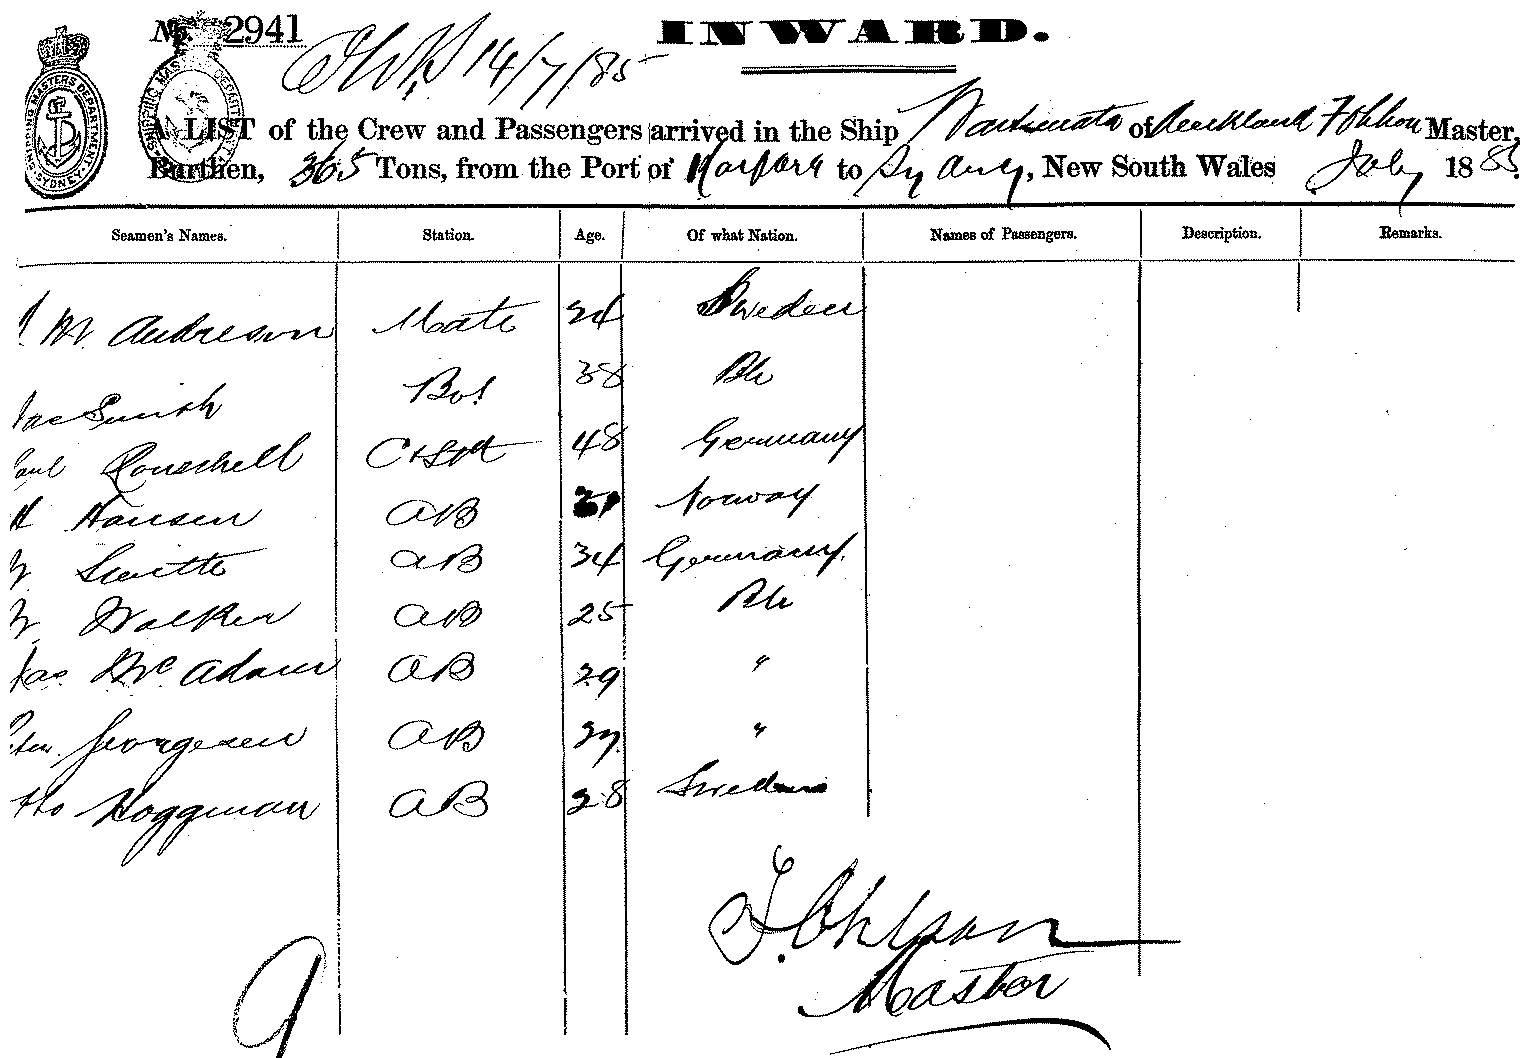 No. 2941 14/7/85 INWARD.
SHIPPING MASTERS DEPARTMENT SYDNEY
A LIST of the Crew and Passengers arrived in the Ship of Auckland Master,
Burthen, 365 Tons, from the Port of to Sydney, New South Wales July 1885.
Seamen's Names. Station. Age. Of what Nation. Names of Passengers. Description. Remarks.
M Andreson Mate 24 Sweden
Jas Smith Bos 38 Bh
Paul 48 Germany
H Hansen AB Norway
W AB 34 Germany
W Walker AB 25 Bh
Jas. McAdam AB 29 "
Jeorgesen AB 27 "
Hoggman AB 28 Sweden
J. Ohlson
Master
9